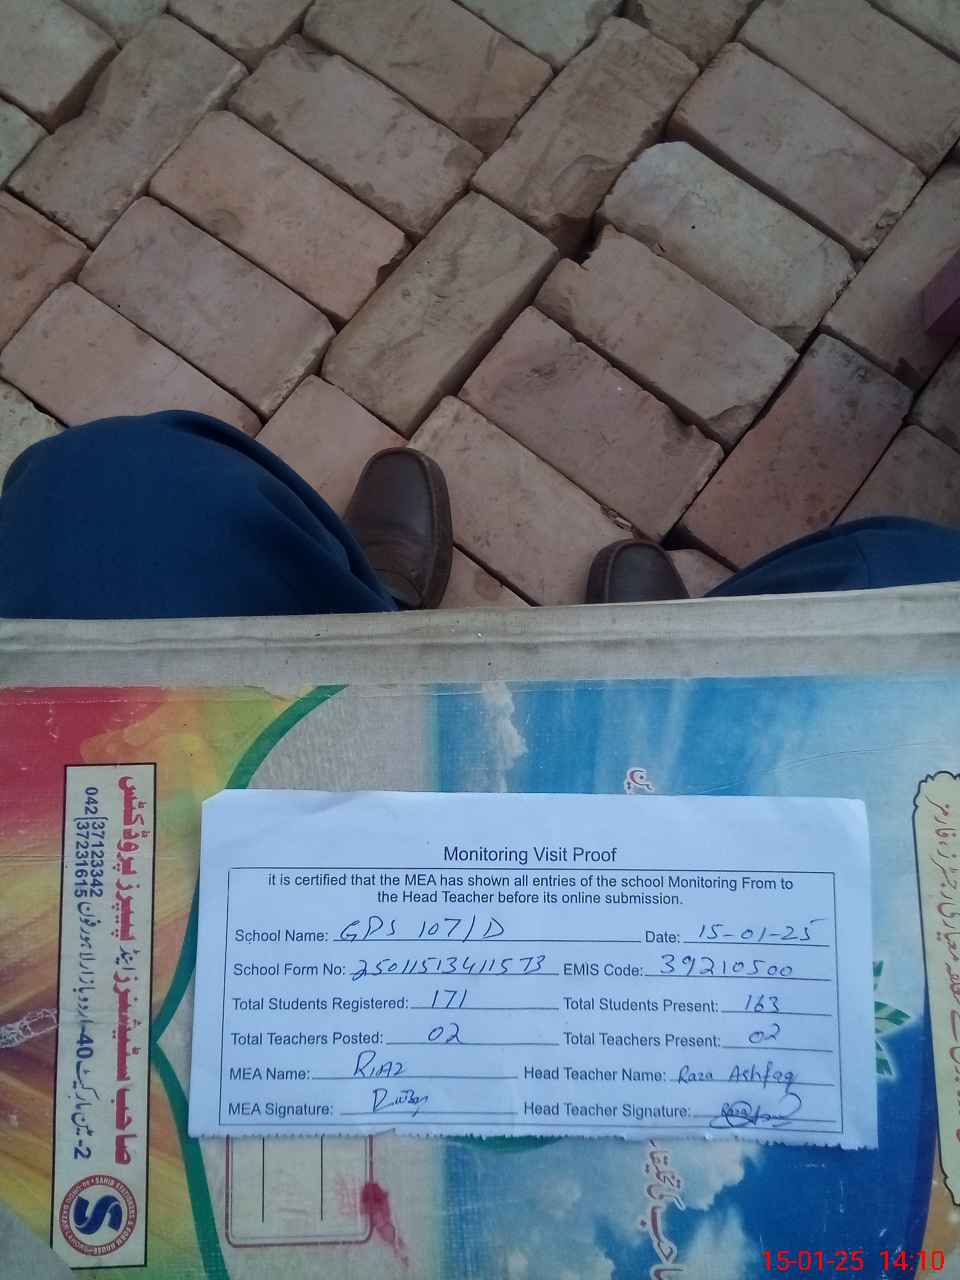 Monitoring Visit Proof
it is certified that the MEA has shown all entries of the school Monitoring From to
the Head Teacher before its online submission.
School Name: GPS 107/D Date: 15-01-25
School Form No: 25011513411573 EMIS Code: 39210500
Total Students Registered: 171 Total Students Present: 163
Total Teachers Posted: 02 Total Teachers Present: 02
MEA Name: RIAZ Head Teacher Name: Raza Ashfaq
MEA Signature: Head Teacher Signature:
صاحب اسٹیشنرز اینڈ پیپرز پروڈکٹس
2- 40-اردو بازار لاہور فون
042
37123342
37231615
15-01-25 14:10